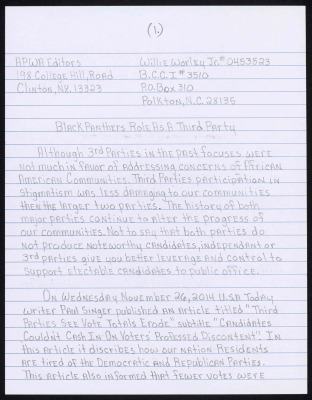 (1.)
APWA Editors Willie Worley Jr.# 0453523
198 College Hill, Road B.C.C.I # 3510
Clinton, N.Y. 13323 P.O. Box 310
Polkton, N.C. 28135
Black Panthers Role As A Third Party
Although 3rd Parties in the past focuses were
not much in favor of addressing concerns of African
American Communities. Third Parties participation in
stigmatism was less damaging to our communities
then the larger two parties. The history of both
major parties continue to alter the progress of
our communities. Not to say that both parties do
not produce noteworthy candidates, independant or
3rd parties give you better leverage and control to
support electable candidates to public office.
On Wednesday November 26, 2014 U.S.A Today
writer Paul Singer published an article titled "Third
Parties See Vote Totals Erode" subtitle "Candidates
Couldn't Cash In On Voters' Professed Discontent". In
this article it discribes how our nation Residents
are tired of the Democratic and Republican Parties.
This article also informed that fewer votes were